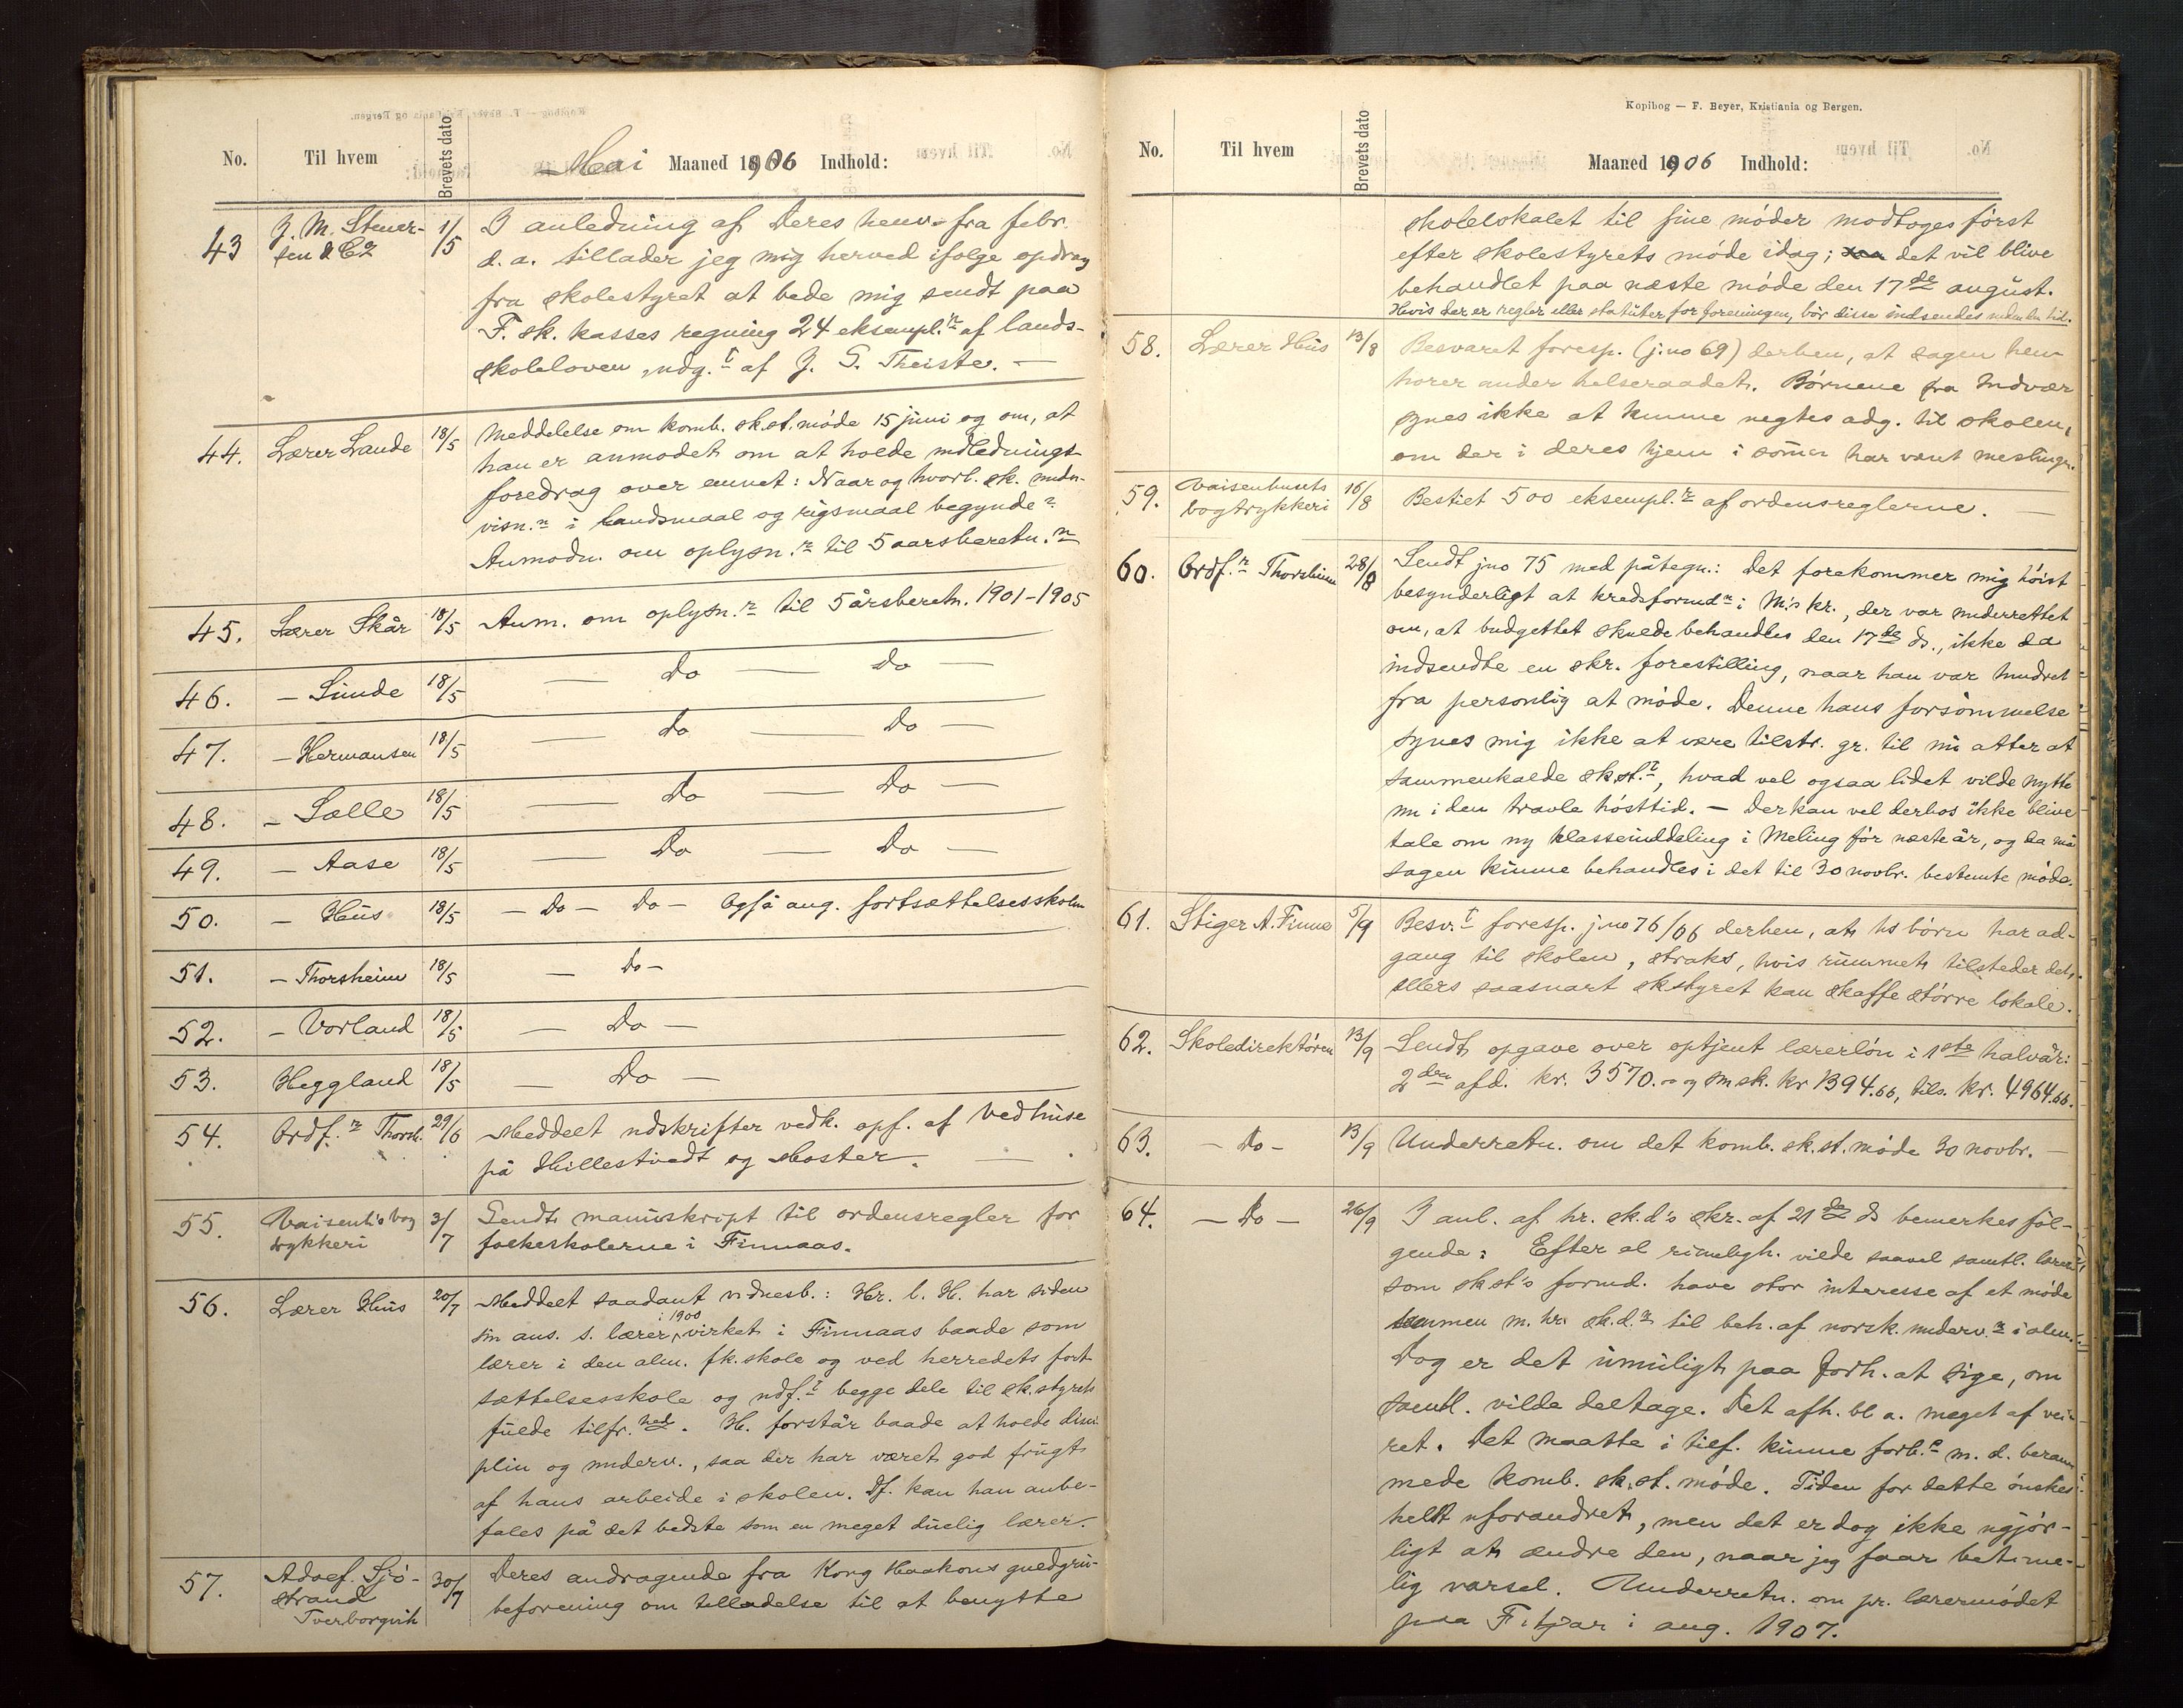 No. Til hvem Brevets dato Mai Maaned 1906 Indhold:
43 J. M. Stener- 1/5 I anledning af Deres henv. fra febr.
sen & Co d. a. tillader jeg mig herved ifølge opdrag
fra skolestyret at bede mig sendt paa
F. sk. kasses regning 24 eksempl.r af lands-
skoleloven, udg.t af J. G. Theiste. —
44. Lærer Lande 18/5 Meddelelse om komb. sk.st. møde 15 juni og om, at
han er anmodet om at holde indlednings-
foredrag over emnet: Naar og hvorl. sk. under-
visn.n i landsmaal og rigsmaal begynde?
Anmodn. om oplysn.r til 5 aarsberetn.n
45. Lærer Skår 18/5 Anm. om oplysn.r til 5 årsberetn. 1901-1905
46. — Sunde 18/5 — Do — Do —
47. — Hermansen 18/5 — Do — Do —
48. — Sælle 18/5 — Do — Do —
49. — Aase 18/5 — Do — Do —
50. — Hus 18/5 — Do — Do — Også ang. fortsættelsesskolen
51. — Thorsheim 18/5 — Do —
52. — Vorland 18/5 — Do —
53. Heggland 18/5 — Do —
54. Ordf.r Thorsh. 29/6 Meddelt udskrifter vedk. opf. af vedhuse
på Hillestvedt og Moster. —
55. Vaisenh's bog 3/7 Sendt manuskript til ordensregler for
trykkeri folkeskolerne i Finnaas.
56. Lærer Hus 20/7 Meddelt saadant vidnesb.: Hr. l. H. har siden
sin ans. s. lærer i 1900 virket i Finnaas baade som
lærer i den alm. fk. skole og ved herredets fort
sættelsesskole og udf.t begge dele til sk.styrets
fulde tilfr.hed. H. forstår baade at holde disci
plin og underv., saa der har været god frugt
af hans arbeide i skolen. Df. kan han anbe-
fales på det bedste som en meget duelig lærer.
57. Adolf Sjö- 30/7 Deres andragende fra Kong Haakons guldgru-
strand beforening om tilladelse til at benytte
Tverborgvik
Kopibog — F. Beyer, Kristiania og Bergen.
No. Til hvem Brevets dato Maaned 1906 Indhold:
skolelokalet til sine møder modtoges først
efter skolestyrets møde idag; saa det vil blive
behandlet paa næste møde den 17de august.
Hvis der er regler eller statuter for foreningen, bør disse indsendes inden den tid.
58. Lærer Hus 13/8 Besvaret foresp. (j.no 69) derhen, at sagen hen-
hører under helseraadet. Børnene fra Indvær
synes ikke at kunne negtes adg. til skolen,
om der i deres hjem i sommer har været meslinger.
59. Vaisenhusets 16/8 Bestilt 500 eksempl.r af ordensreglerne. —
bogtrykkeri
60. Ordf.r Thorsheim 28/8 Sendt jno 75 med påtegn.: Det forekommer mig høist
besynderligt at kredsformd.n i M's kr., der var underrettet
om, at budgettet skulde behandles den 17de ds., ikke da
indsendte en skr. forestilling, naar han var hindret
fra personlig at møde. Denne hans forsømmelse
synes mig ikke at være tilstr. gr. til nu atter at
sammenkalde sk.st.t, hvad vel ogsaa lidet vilde nytte
nu i den travle høsttid. — Der kan vel derhos ikke blive
tale om ny klasseinddeling i Meling før næste år, og da må
sagen kunne behandles i det til 30 novbr. bestemte møde.
61. Stiger A. Finne 5/9 Besv.t foresp. j.no 76/06 derhen, at hs børn har ad-
gang til skolen, straks, hvis rummet tilsteder det,
ellers saasnart skstyret kan skaffe større lokale.
62. Skoledirektøren 13/9 Sendt opgave over optjent lærerløn i 1ste halvår:
2den afd. kr. 3570.- og smsk. kr 1394.66, tils. kr. 4964.66.
63. — Do — 13/9 Underretn. om det komb. sk.st. møde 30 novbr. —
64. — Do — 26/9 I anl. af hr. sk.d's skr. af 21de ds bemerkes føl-
gende: Efter al rimeligh. vilde saavel samtl. lærere
som sk.st's formd. have stor interesse af et møde
sammen m. hr. sk.d.r til beh. af norsk. underv.n i alm.
Dog er det umuligt paa forh. at sige, om
samtl. vilde deltage. Det afh. bl a. meget af vei-
ret. Det maatte i tilf. kunne forb.e m. d. beram
mede komb. sk.st. møde. Tiden for dette ønskes
helst uforandret, men det er dog ikke ugjør-
ligt at ændre den, naar jeg faar betime-
lig varsel. Underretn. om pr. lærermødet
paa Fitjar i aug. 1907.